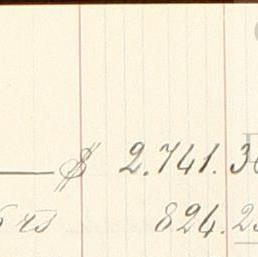 $ 2.741.3
rs 824.2